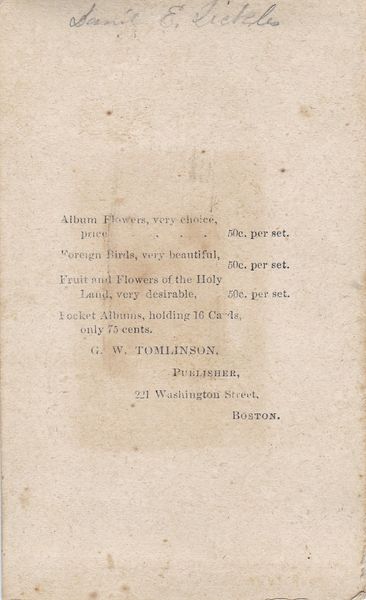 Danil E. Sickles
Album Flowers, very choice,
price . . . 50c. per set.
Foreign Birds, very beautiful,
50c. per set.
Fruit and Flowers of the Holy
Land, very desirable, 50c. per set.
Pocket Albums, holding 16 Cards,
only 75 cents.
G. W. TOMLINSON,
PUBLISHER,
221 Washington Street,
BOSTON.